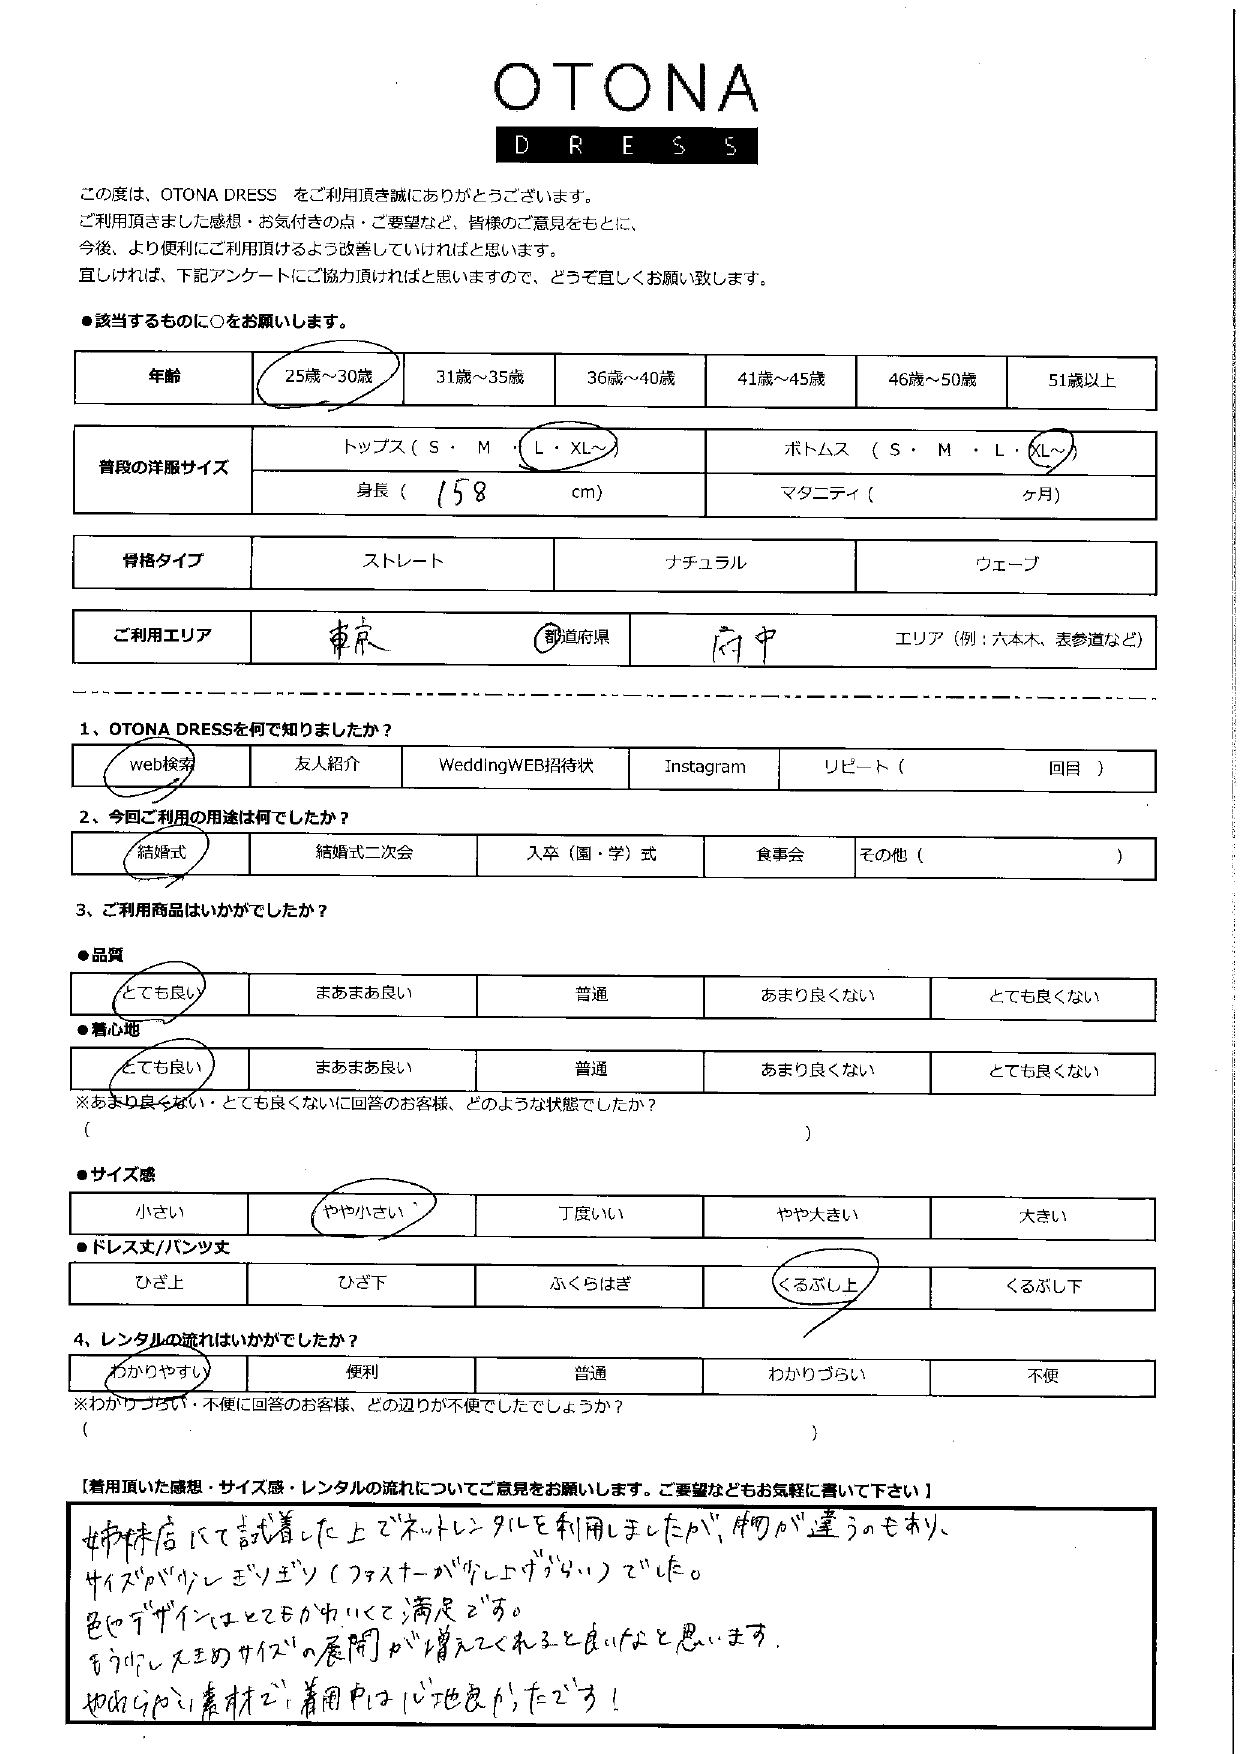 OTONA
DRESS
この度は、OTONA DRESS をご利用頂き誠にありがとうございます。
ご利用頂きました感想・お気付きの点・ご要望など、皆様のご意見をもとに、
今後、より便利にご利用頂けるよう改善していければと思います。
宜しければ、下記アンケートにご協力頂ければと思いますので、どうぞ宜しくお願い致します。
●該当するものに〇をお願いします。
年齢 25歳～30歳 31歳～35歳 36歳～40歳 41歳～45歳 46歳～50歳 51歳以上
普段の洋服サイズ トップス ( S ・ M ・ L ・ XL～) ボトムス ( S ・ M ・ L ・ XL～)
身長 ( 158 cm) マタニティ ( ヶ月)
骨格タイプ ストレート ナチュラル ウェーブ
ご利用エリア 東京 都道府県 府中 エリア（例：六本木、表参道など）
1、OTONA DRESSを何で知りましたか？
web検索 友人紹介 WeddingWEB招待状 Instagram リピート ( 回目 )
2、今回ご利用の用途は何でしたか？
結婚式 結婚式二次会 入卒（園・学）式 食事会 その他 ( )
3、ご利用商品はいかがでしたか？
●品質
とても良い まあまあ良い 普通 あまり良くない とても良くない
●着心地
とても良い まあまあ良い 普通 あまり良くない とても良くない
※あまり良くない・とても良くないに回答のお客様、どのような状態でしたか？
( )
●サイズ感
小さい やや小さい 丁度いい やや大きい 大きい
●ドレス丈/パンツ丈
ひざ上 ひざ下 ふくらはぎ くるぶし上 くるぶし下
4、レンタルの流れはいかがでしたか？
わかりやすい 便利 普通 わかりづらい 不便
※わかりづらい・不便に回答のお客様、どの辺りが不便でしたでしょうか？
( )
【着用頂いた感想・サイズ感・レンタルの流れについてご意見をお願いします。ご要望などもお気軽に書いて下さい】
姉妹店にて試着した上でネットレンタルを利用しましたが、物が違うのもあり、
サイズが少しギリギリ（ファスナーが少し上げづらい）でした。
色やデザインはとてもかわいくて満足です。
もう少し大きめサイズの展開が増えてくれると良いなと思います。
やわらかい素材で、着用中は心地良かったです！